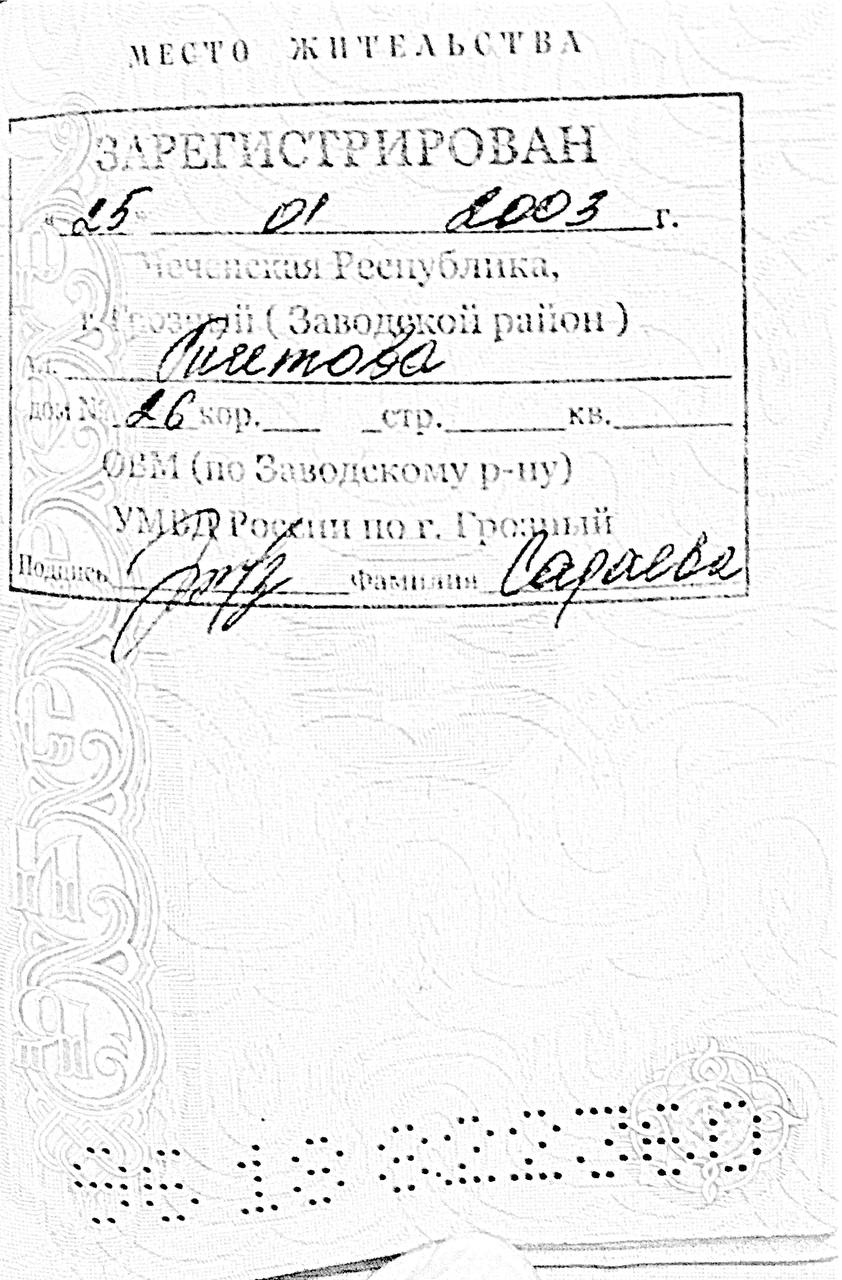 МЕСТО ЖИТЕЛЬСТВА
ЗАРЕГИСТРИРОВАН
"25" 01 2003 г.
Чеченская Республика,
г. Грозный ( Заводской район )
ул.
дом № 26 кор. стр. кв.
ОВМ (по Заводскому р-ну)
УМВД России по г. Грозный
Подпись Фамилия Сараева
96 18 822360